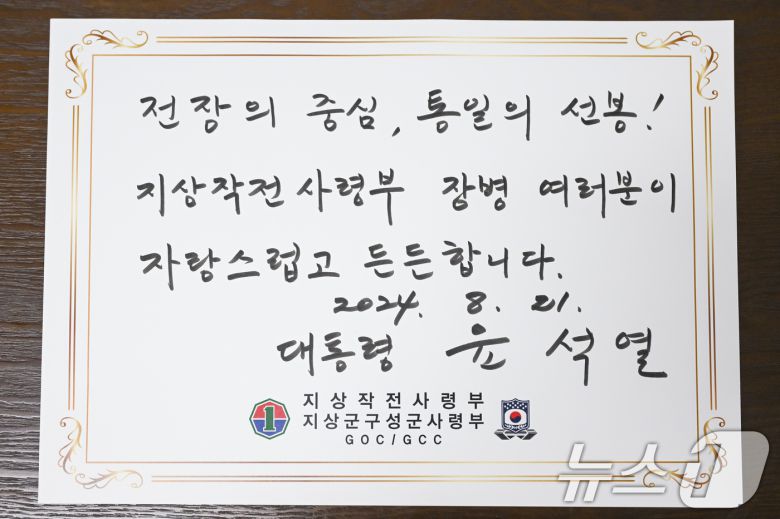 전장의 중심, 통일의 선봉!
지상작전사령부 장병 여러분이
자랑스럽고 든든합니다.
2024. 8. 21.
대통령 윤석열
1
지상작전사령부
지상군구성군사령부
GOC/GCC
뉴스1